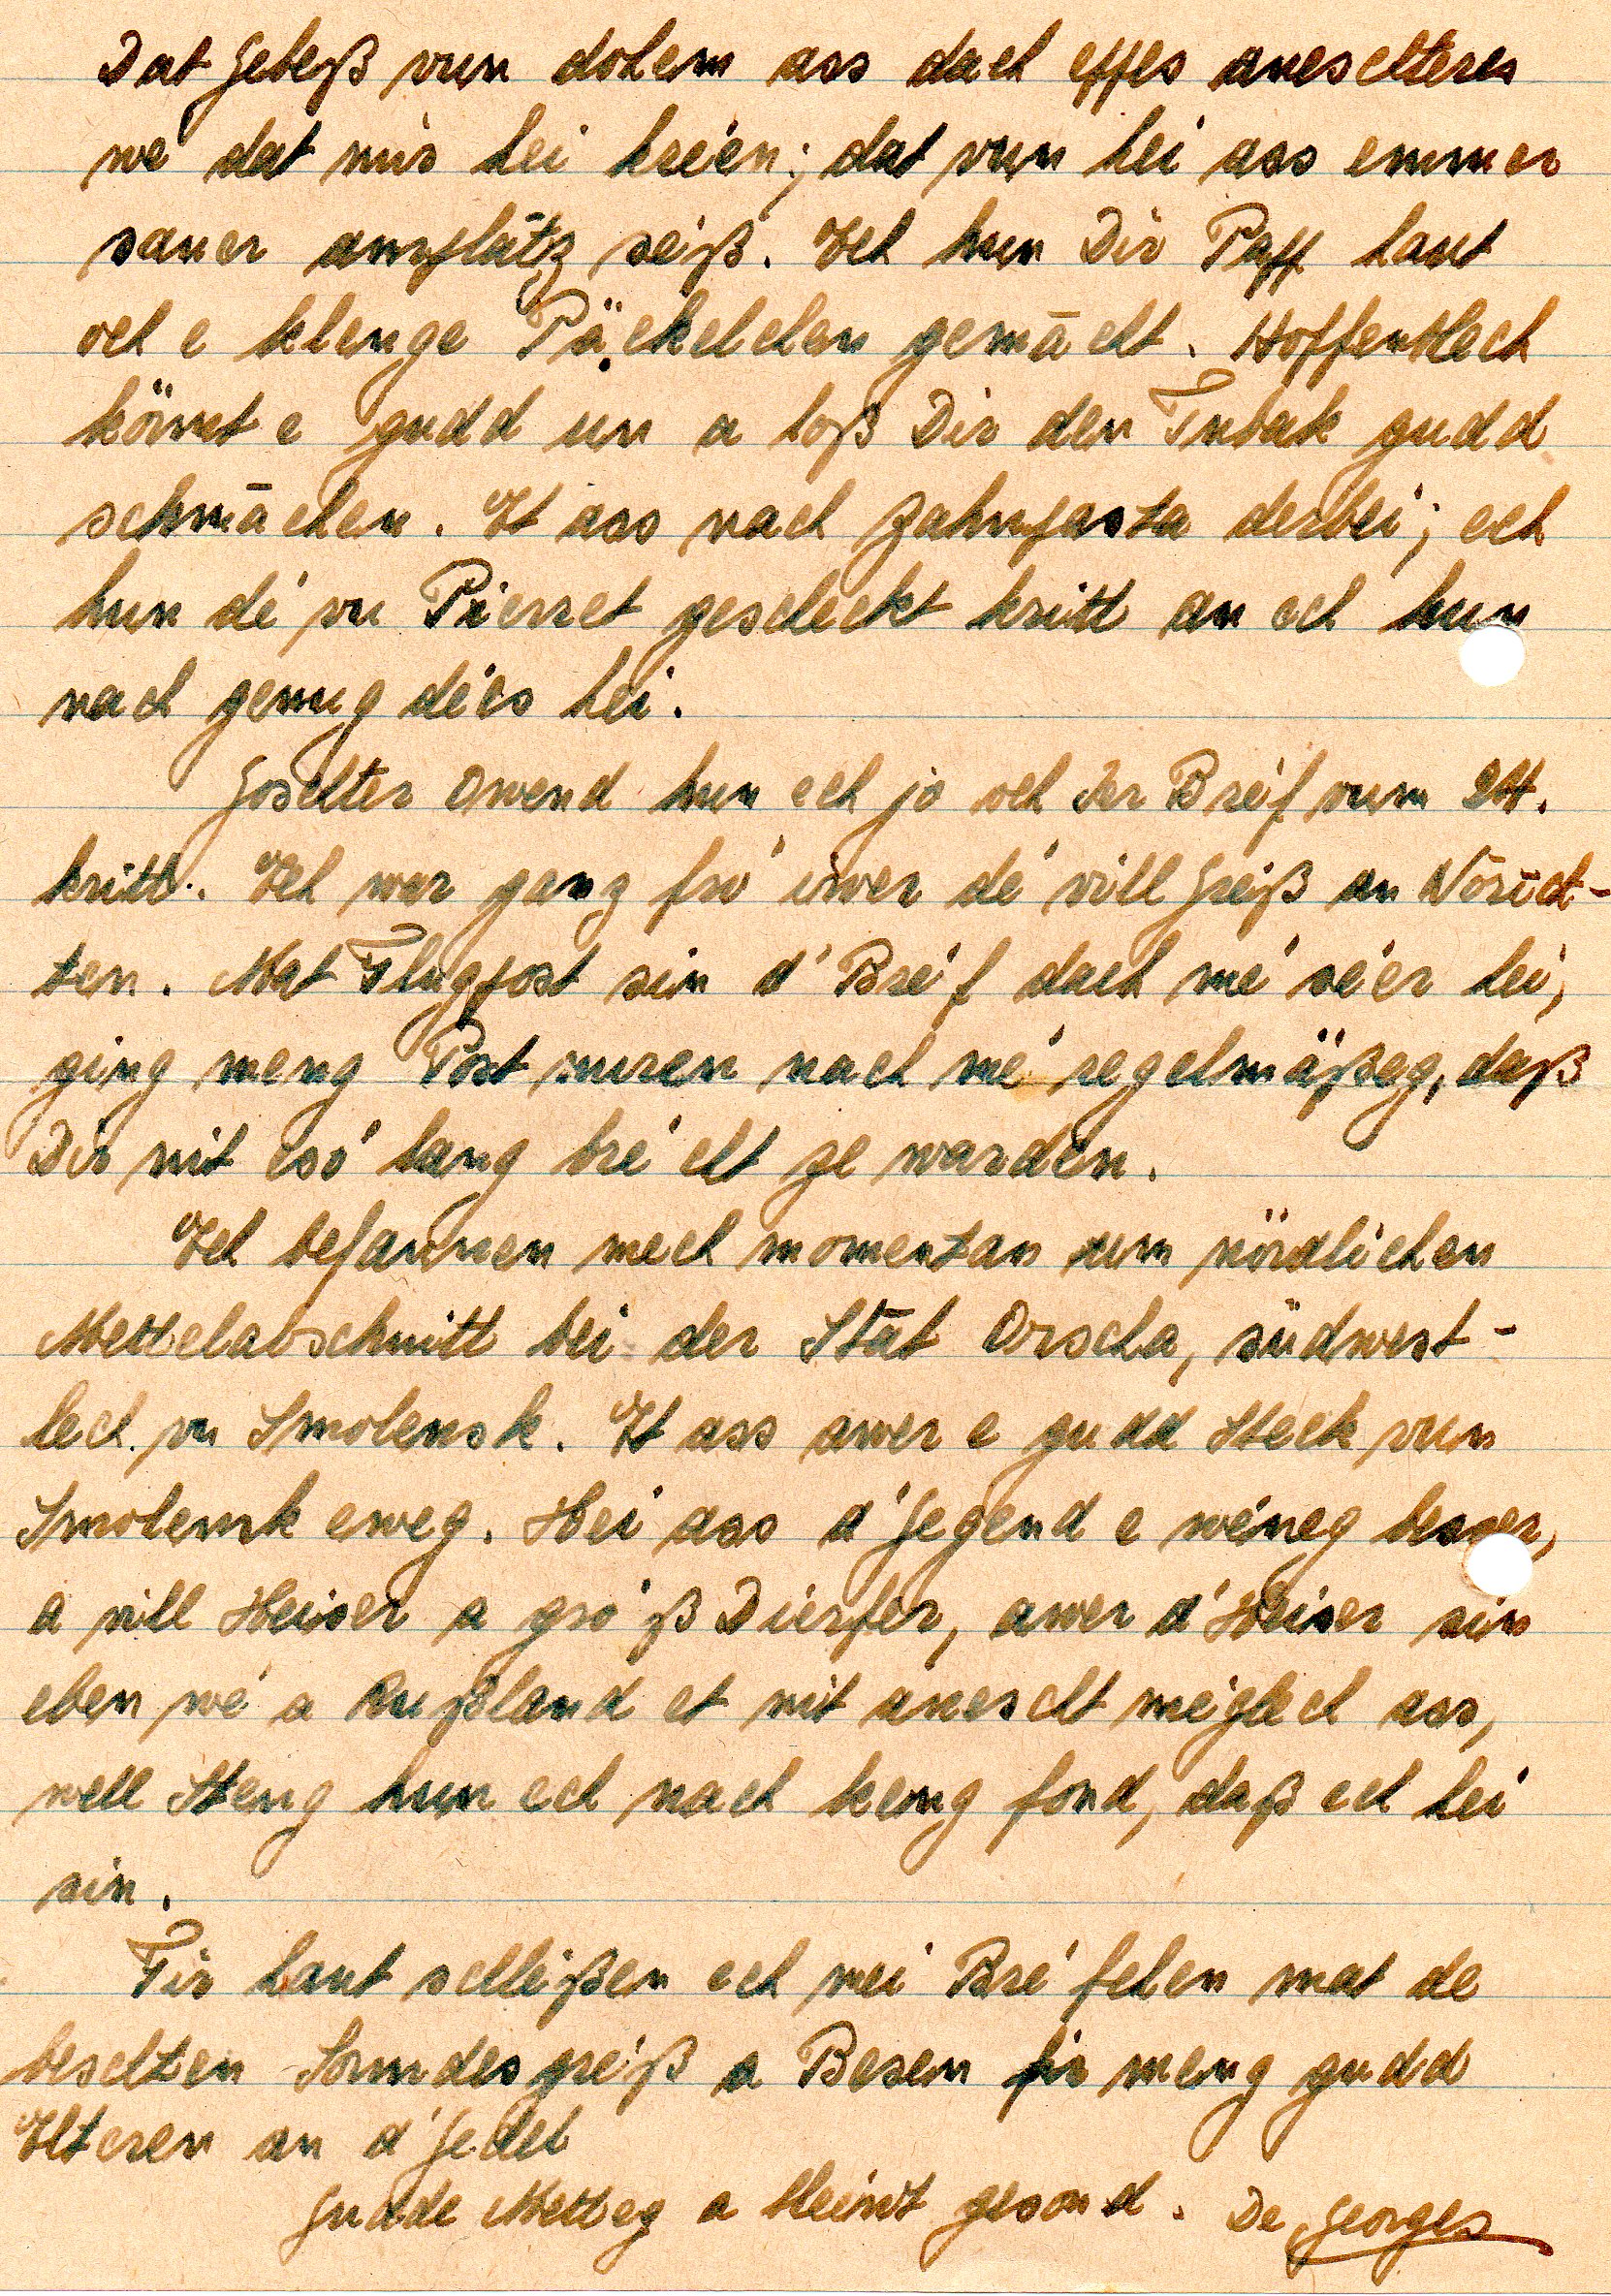 Dat Gebeß vun dohem ass dach eppes aneschteres
we dat mir hei kréen; dat vun hei ass emmer
sauer amplätz seiß. Ech hun Dir Papp haut
och e klenge Päckelchen gemācht. Hoffentlech
könnt e gudd un a loß Dir den Tubak gudd
schmāchen. Et ass nach Zahnpasta derbei; ech
hun dé vu Pierret gescheckt kritt an ech hun
nach genug déers hei.
Göschter Owend hun ech jo och Ier Bréif vum 24.
kritt. Ech war ganz fró iwer dé vill Gréiß an Nōrich-
ten. Mat Flugpost sin d'Bréif dach mé séier hei,
ging meng Post nuren nach mé regelmäßeg, daß
Dir nit esó lang bréicht ze warden.
Ech befannen mech momentan um nördlichen
Mettelabschnitt bei der Stāt Orscha, südwest-
lech vu Smolensk. Et ass awer e gudd Steck vun
Smolensk eweg. Hei ass d'Gegend e wéneg besser,
a vill Heiser a gró'ß Dierfer, awer d'Heiser sin
eben wé a Rußland et nit anescht méiglech ass,
well Steng hun ech nach keng fond, daß ech hei
sin.
Fir haut schleißen ech mei Bréifchen mat de
beschten Sonndesgréiß a Besen fir meng gudd
Elteren an d'Gedel
Gudde Metteg a bleiwt gesond. De Georges